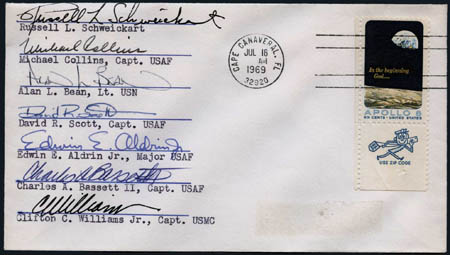 Russell L Schweickart
Russell L. Schweickart
Michael Collins
Michael Collins, Capt. USAF
Alan L. Bean
Alan L. Bean, Lt. USN
David R. Scott
David R. Scott, Capt. USAF
Edwin E. Aldrin Jr
Edwin E. Aldrin Jr., Major USAF
Charles A Bassett II
Charles A. Bassett II, Capt. USAF
CCWilliams
Clifton C. Williams Jr., Capt. USMC
CAPE CANAVERAL, FL
JUL 16
AM
1969
32920
In the beginning
God...
APOLLO 8
SIX CENTS · UNITED STATES
USE ZIP CODE